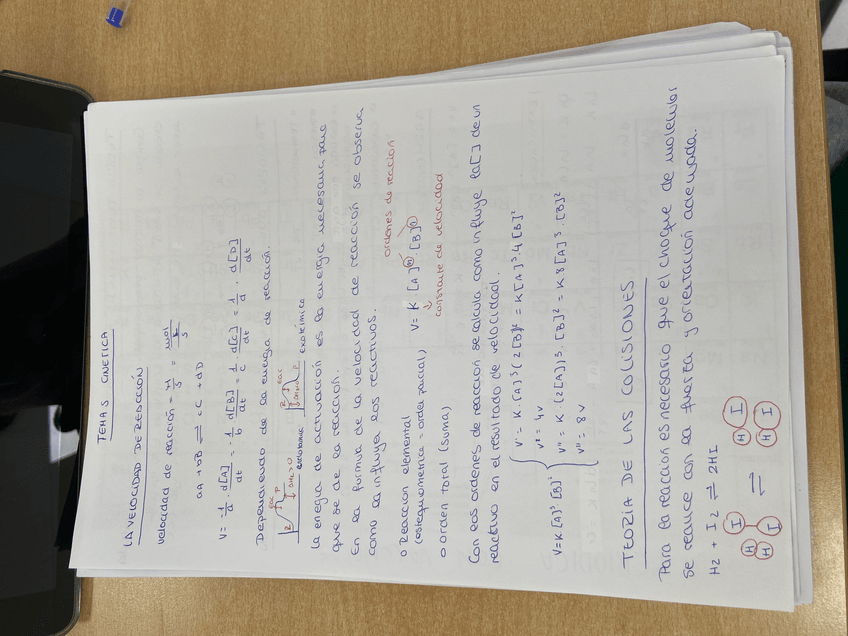 TEMA 5 CINETICA
LA VELOCIDAD DE REACCIÓN
velocidad de reacción = M/s = mol/L/s
aA + bB ⇌ cC + dD
V = -1/a · d[A]/dt = -1/b d[B]/dt = 1/c d[C]/dt = 1/d · d[D]/dt
Dependiendo de la energia de reacción.
Eac R P ΔH>0 endotermica Eac R P exotérmico
la energia de activación es la energia necesaria para
que se de la reacción.
En la formula de la velocidad de reacción se observa
como la influye los reactivos.
ordenes de reacion
o Reaccion elemental
(estequiometrica = orden parcial) V = K [A] [B]
constante de velocidad
o orden total (suma)
Con los ordenes de reaccion se calcula como influye la [] de un
reactivo en el resultado de velocidad.
V = K [A]³ · [B]²
V' = K · [A]³ (2[B])² = K[A]³ · 4[B]²
V' = 4V
V'' = K · (2[A])³ · [B]² = K 8[A]³ · [B]²
V'' = 8V
TEORIA DE LAS COLISIONES
Para la reacción es necesario que el choque de moleculas
se realice con la fuerza y orientación adecuada.
H2 + I2 ⇌ 2HI
H I H I
H I ⇌ H I